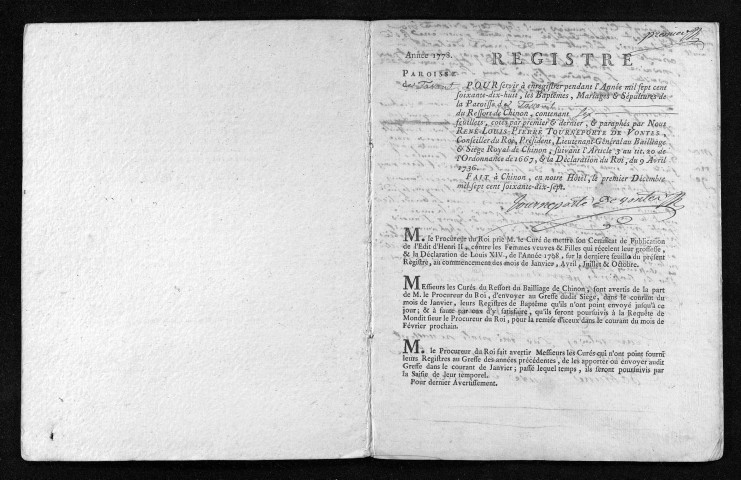 premier
Année 1778.
REGISTRE
PAROISSE
de Tavant
POUR servir à enregistrer pendant l'Année mil sept cent
soixante-dix-huit, les Baptêmes, Mariages & Sépultures de
la Paroisse de Tavant
du Ressort de Chinon, contenant six
feuillets, cotés par premier & dernier, & paraphés par Nous
RENÉ-LOUIS-PIERRE TOURNEPORTE DE VONTES,
Conseiller du Roi, Président, Lieutenant-Général au Bailliage
& Siége Royal de Chinon; suivant l'Article 3 au tit. 20 de
l'Ordonnance de 1667, & la Déclaration du Roi, du 9 Avril
1736.
FAIT à Chinon, en notre Hôtel, le premier Décembre
mil sept cent soixante-dix-sept.
Tourneporte De vontes
M. le Procureur du Roi prie M. le Curé de mettre son Certificat de Publication
de l'Edit d'Henri II, contre les Femmes veuves & Filles qui récelent leur grossesse,
& la Déclaration de Louis XIV, de l'Année 1708, sur la derniere feuille du présent
Registre, au commencement des mois de Janvier, Avril, Juillet & Octobre.
MEssieurs les Curés du Ressort du Bailliage de Chinon, sont avertis de la part
de M. le Procureur du Roi, d'envoyer au Greffe dudit Siége, dans le courant du
mois de Janvier, leurs Registres de Baptême qu'ils n'ont point envoyé jusqu'à ce
jour; & à faute par eux d'y satisfaire, qu'ils seront poursuivis à la Requête de
Mondit sieur le Procureur du Roi, pour la remise d'iceux dans le courant du mois de
Février prochain.
M. le Procureur du Roi fait avertir Messieurs les Curés qui n'ont point fourni
leurs Registres au Greffe des années précédentes, de les apporter ou envoyer audit
Greffe dans le courant de Janvier; passé lequel temps, ils seront poursuivis par
la Saisie de leur temporel.
Pour dernier Avertissement.